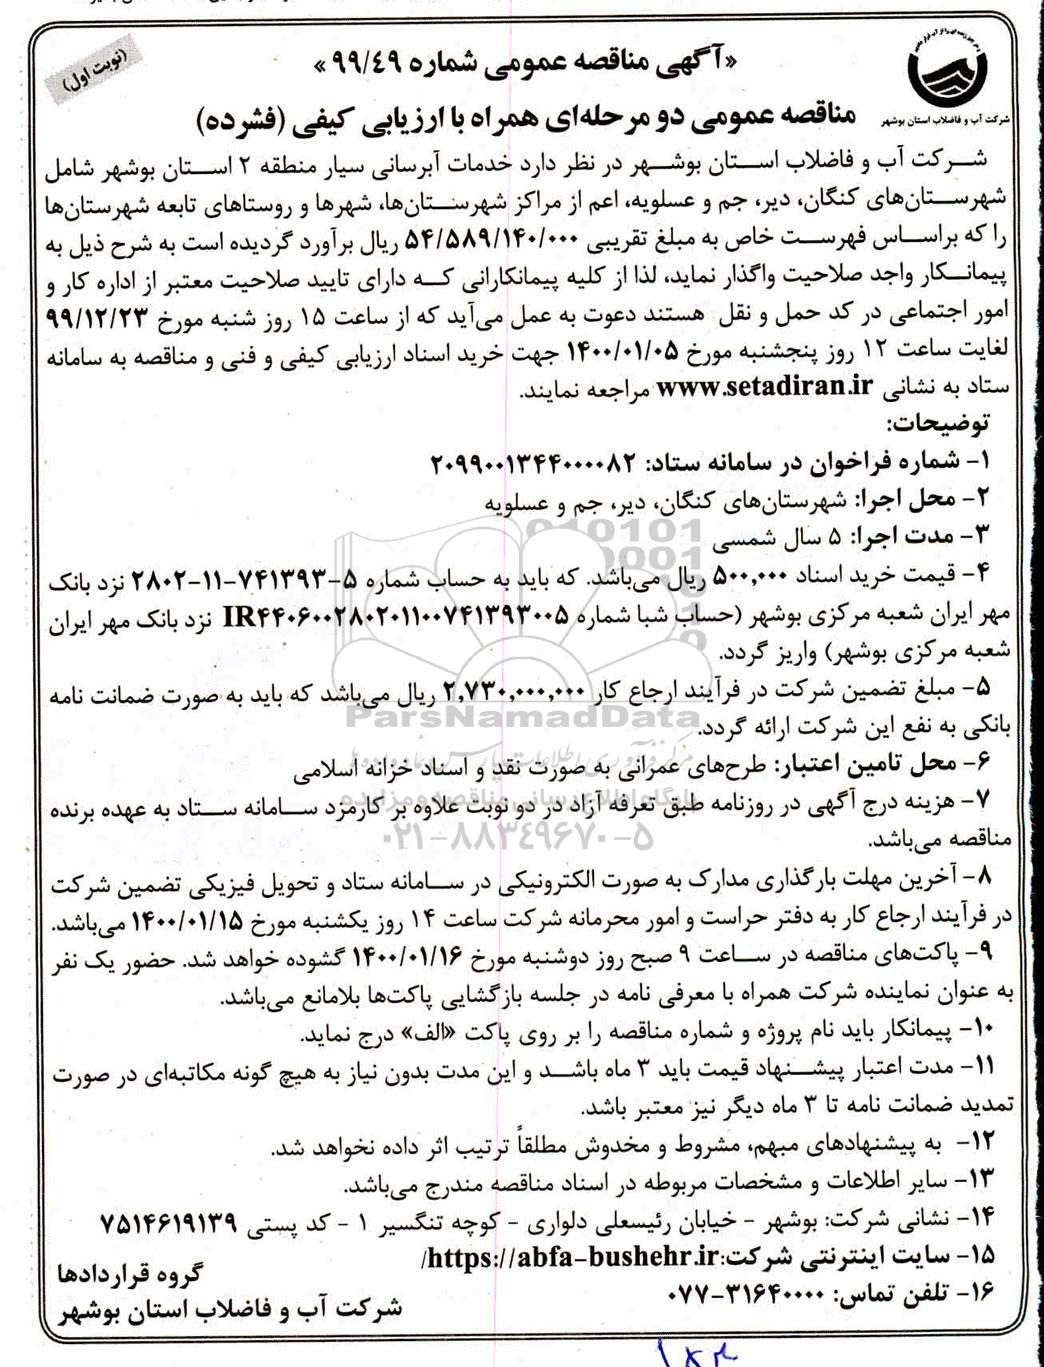 (نوبت اول)
«آگهی مناقصه عمومی شماره ۹۹/۴۹»
شرکت آب و فاضلاب استان بوشهر
مناقصه عمومی دو مرحله‌ای همراه با ارزیابی کیفی (فشرده)
شرکت آب و فاضلاب استان بوشهر در نظر دارد خدمات آبرسانی سیار منطقه ۲ استان بوشهر شامل
شهرستان‌های کنگان، دیر، جم و عسلویه، اعم از مراکز شهرستان‌ها، شهرها و روستاهای تابعه شهرستان‌ها
را که براساس فهرست خاص به مبلغ تقریبی ۵۴/۵۸۹/۱۴۰/۰۰۰ ریال برآورد گردیده است به شرح ذیل به
پیمانکار واجد صلاحیت واگذار نماید، لذا از کلیه پیمانکارانی که دارای تایید صلاحیت معتبر از اداره کار و
امور اجتماعی در کد حمل و نقل هستند دعوت به عمل می‌آید که از ساعت ۱۵ روز شنبه مورخ ۹۹/۱۲/۲۳
لغایت ساعت ۱۲ روز پنجشنبه مورخ ۱۴۰۰/۰۱/۰۵ جهت خرید اسناد ارزیابی کیفی و فنی و مناقصه به سامانه
ستاد به نشانی www.setadiran.ir مراجعه نمایند.
توضیحات:
۱- شماره فراخوان در سامانه ستاد: ۲۰۹۹۰۰۱۳۴۴۰۰۰۰۸۲
۲- محل اجرا: شهرستان‌های کنگان، دیر، جم و عسلویه
۳- مدت اجرا: ۵ سال شمسی
۴- قیمت خرید اسناد ۵۰۰,۰۰۰ ریال می‌باشد. که باید به حساب شماره ۵-۷۴۱۳۹۳-۱۱-۲۸۰۲ نزد بانک
مهر ایران شعبه مرکزی بوشهر (حساب شبا شماره IR۴۴۰۶۰۰۲۸۰۲۰۱۱۰۰۷۴۱۳۹۳۰۰۵ نزد بانک مهر ایران
شعبه مرکزی بوشهر) واریز گردد.
۵- مبلغ تضمین شرکت در فرآیند ارجاع کار ۲,۷۳۰,۰۰۰,۰۰۰ ریال می‌باشد که باید به صورت ضمانت نامه
بانکی به نفع این شرکت ارائه گردد.
ParsNamadData
۶- محل تامین اعتبار: طرح‌های عمرانی به صورت نقد و اسناد خزانه اسلامی
۷- هزینه درج آگهی در روزنامه طبق تعرفه آزاد در دو نوبت علاوه بر کارمزد سامانه ستاد به عهده برنده
مناقصه می‌باشد.
۰۲۱-۸۸۳۴۹۶۷۰-۵
۸- آخرین مهلت بارگذاری مدارک به صورت الکترونیکی در سامانه ستاد و تحویل فیزیکی تضمین شرکت
در فرآیند ارجاع کار به دفتر حراست و امور محرمانه شرکت ساعت ۱۴ روز یکشنبه مورخ ۱۴۰۰/۰۱/۱۵ می‌باشد.
۹- پاکت‌های مناقصه در ساعت ۹ صبح روز دوشنبه مورخ ۱۴۰۰/۰۱/۱۶ گشوده خواهد شد. حضور یک نفر
به عنوان نماینده شرکت همراه با معرفی نامه در جلسه بازگشایی پاکت‌ها بلامانع می‌باشد.
۱۰- پیمانکار باید نام پروژه و شماره مناقصه را بر روی پاکت «الف» درج نماید.
۱۱- مدت اعتبار پیشنهاد قیمت باید ۳ ماه باشد و این مدت بدون نیاز به هیچ گونه مکاتبه‌ای در صورت
تمدید ضمانت نامه تا ۳ ماه دیگر نیز معتبر باشد.
۱۲- به پیشنهادهای مبهم، مشروط و مخدوش مطلقاً ترتیب اثر داده نخواهد شد.
۱۳- سایر اطلاعات و مشخصات مربوطه در اسناد مناقصه مندرج می‌باشد.
۱۴- نشانی شرکت: بوشهر - خیابان رئیسعلی دلواری - کوچه تنگسیر ۱ - کد پستی ۷۵۱۴۶۱۹۱۳۹
۱۵- سایت اینترنتی شرکت: https://abfa-bushehr.ir/
۱۶- تلفن تماس: ۰۷۷-۳۱۶۴۰۰۰۰
گروه قراردادها
شرکت آب و فاضلاب استان بوشهر